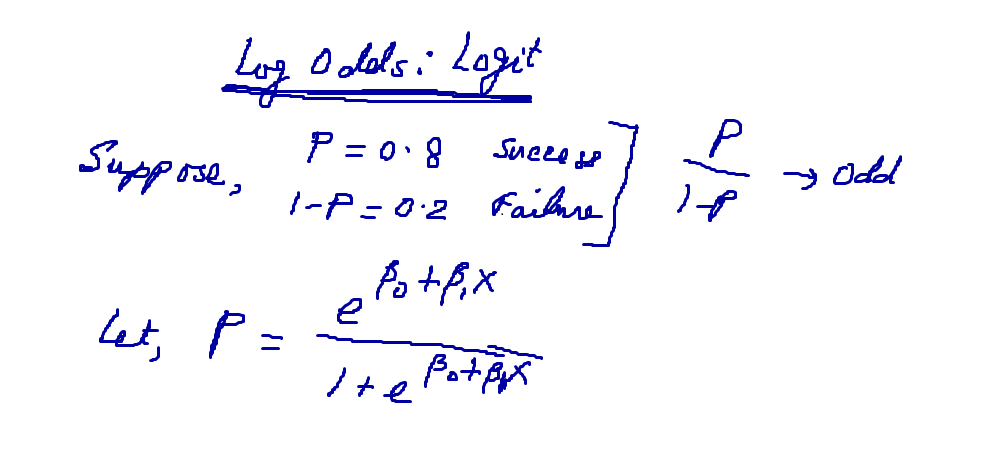 Log Odds: Logit
Suppose, P = 0.8 Success] P/1-P → Odd
1-P = 0.2 Failure]
Let, P = e^(β₀+β₁X) / 1 + e^(β₀+β₁X)